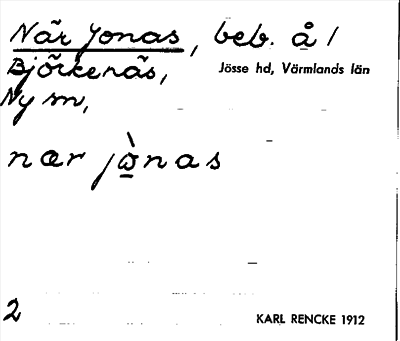 När Jonas, beb. å /
Björkenäs, Jösse hd, Värmlands län
Ny sn,
nær jὼ̲nas
2 KARL RENCKE 1912